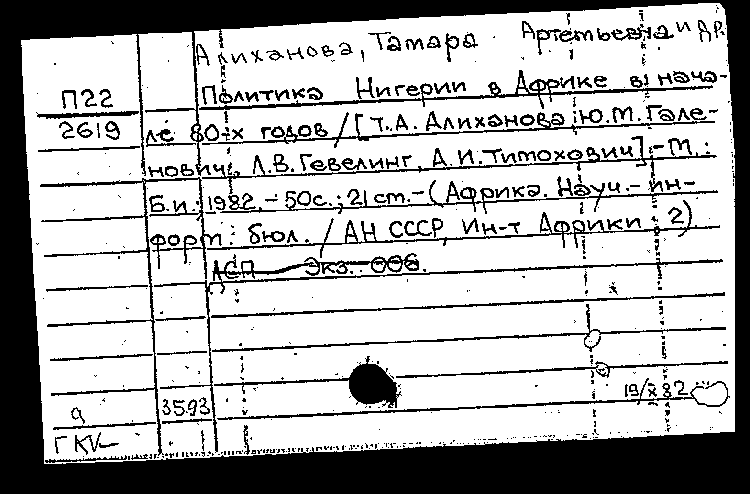 Алиханова, Тамара Артемьевна и др.
П22 Политика Нигерии в Африке в нача-
2619 ле 80-х годов / [Т.А. Алиханова, Ю.М. Гале-
нович, Л.В. Гевелинг, А.И. Тимохович]. - М.:
Б.и., 1982. - 50с.; 21 см. - (Африка. Науч.-ин-
форм. бюл. / АН СССР, Ин-т Африки; 2)
ДСП Экз. 006.
19/X 82
а 3593
ГКЛ